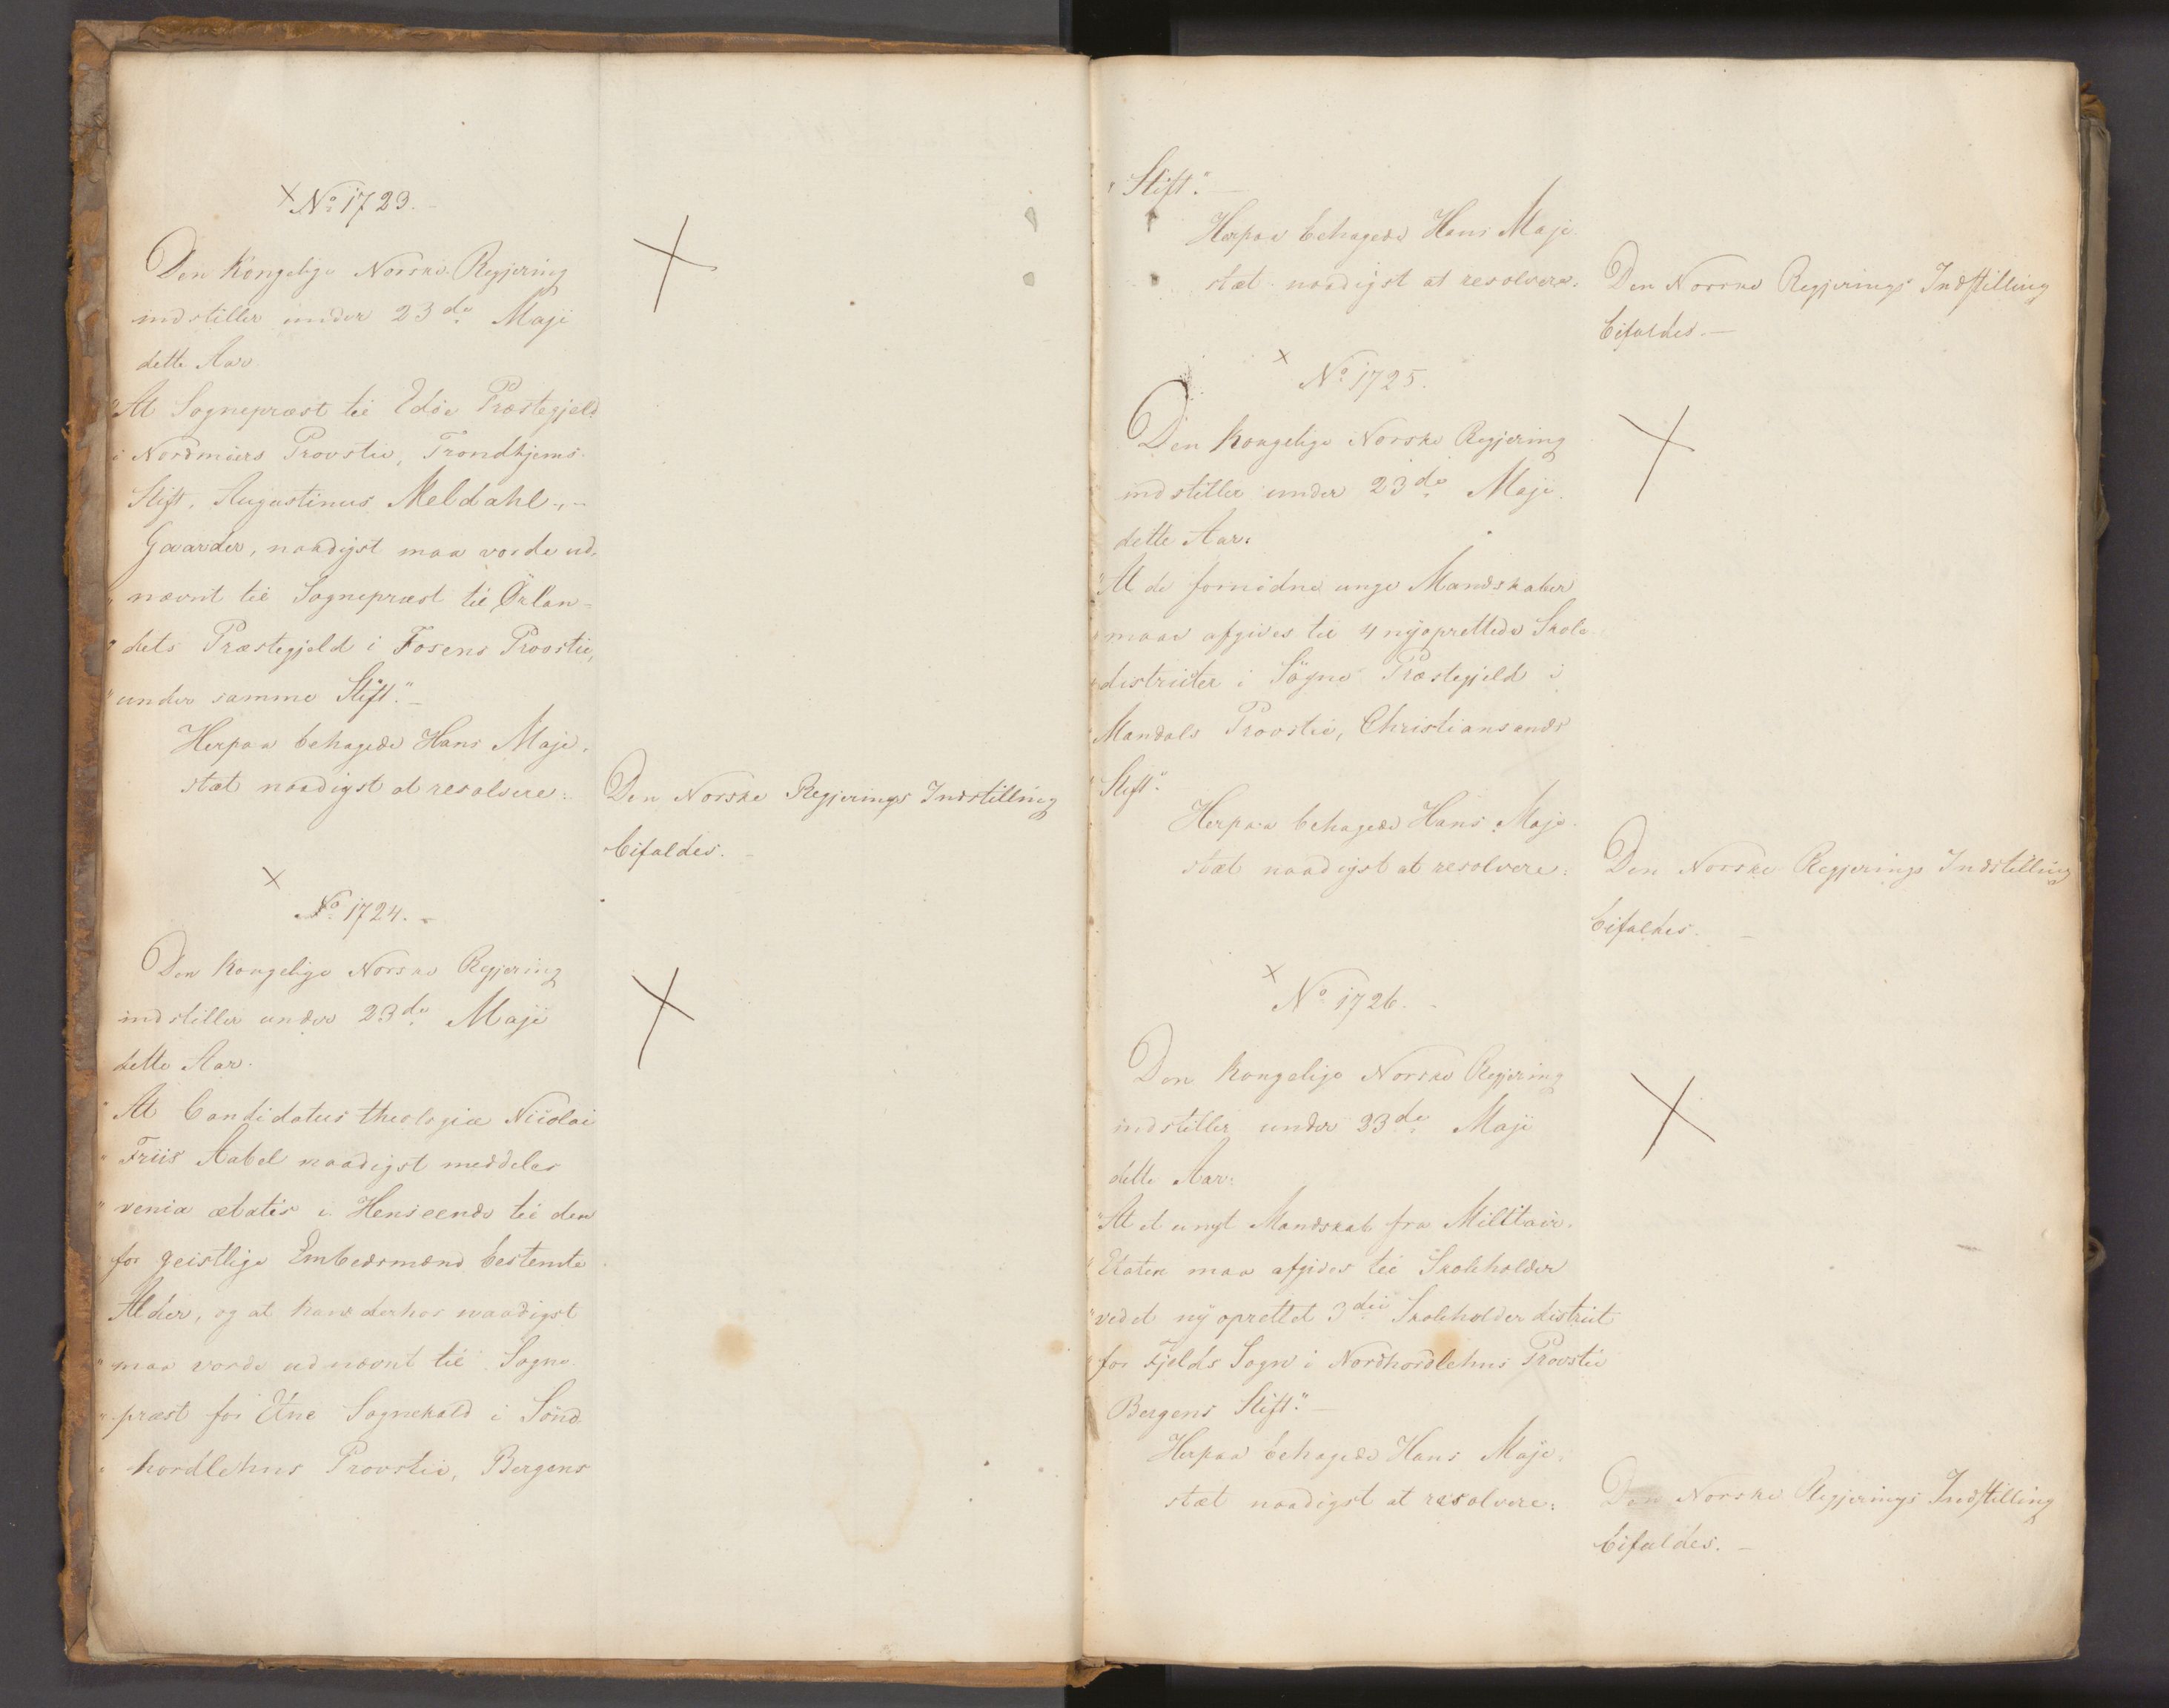 No 1723.
Den Kongelige Norske Regjering
indstiller under 23de Maji
dette Aar
"At Sognepræst til Edöe Præstegjeld
i Nordmöers Provstie, Trondhjems
Stift, Augustinus Meldahl
Gaarder, naadigst maa vorde ud-
"nævnt til Sognepræst til Örlan-
"dets Præstegjeld i Fosens Provstie,
"under samme Stift."
Herpaa behagede Hans Maje-
stæt naadigst at resolvere:
Den Norske Regjerings Indstilling
bifaldes.
No 1724.
Den Kongelige Norske Regjering
indstiller under 23de Maji
dette Aar.
"At Candidatus theologiæ Nicolai
"Friis Aabel naadigst meddeles
"venia ætatis i Henseende til den
for geistlige Embedsmænd bestemte
Alder, og at han derhos naadigst
"maa vorde udnævnt til Sogne-
"præst for Etne Sognekald i Sönd-
"hordlehns Provstie, Bergens
"Stift."
Herpaa behagede Hans Maje-
stæt naadigst at resolvere.
Den Norske Regjerings Indstilling
bifaldes.
No 1725.
Den Kongelige Norske Regjering
indstiller under 23de Maji
dette Aar:
"At de fornödne unge Mandskaber
"maae afgives til 4 nyoprettede Skole-
"districter i Sögne Præstegjeld i
"Mandals Provstie, Christiansands
"Stift."
Herpaa behagede Hans Maje-
stæt naadigst at resolvere:
Den Norske Regjerings Indstilling
bifaldes.
No 1726.
Den Kongelige Norske Regjering
indstiller under 23de Maji
dette Aar:
"At et ungt Mandskab fra Militair-
"Etaten maa afgives til Skoleholder
"ved et ny oprettet 3die Skoleholderdistrict
"for Fjelds Sogn i Nordhordlehns Provstie
Bergens Stift."
Herpaa behagede Hans Maje-
stæt naadigst at resolvere:
Den Norske Regjerings Indstilling
bifaldes.